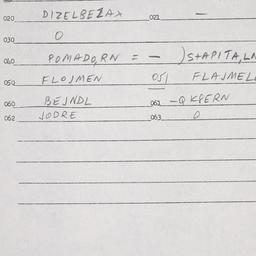 020 DIZELBEZAX 021 —
030 O
040 POMADO,RN = — )STAPITA,LN
050 FLOJMEN 051 FLAJMEL
060 BEJNDL 061 -Q KPERN
062 JODRE 063 O